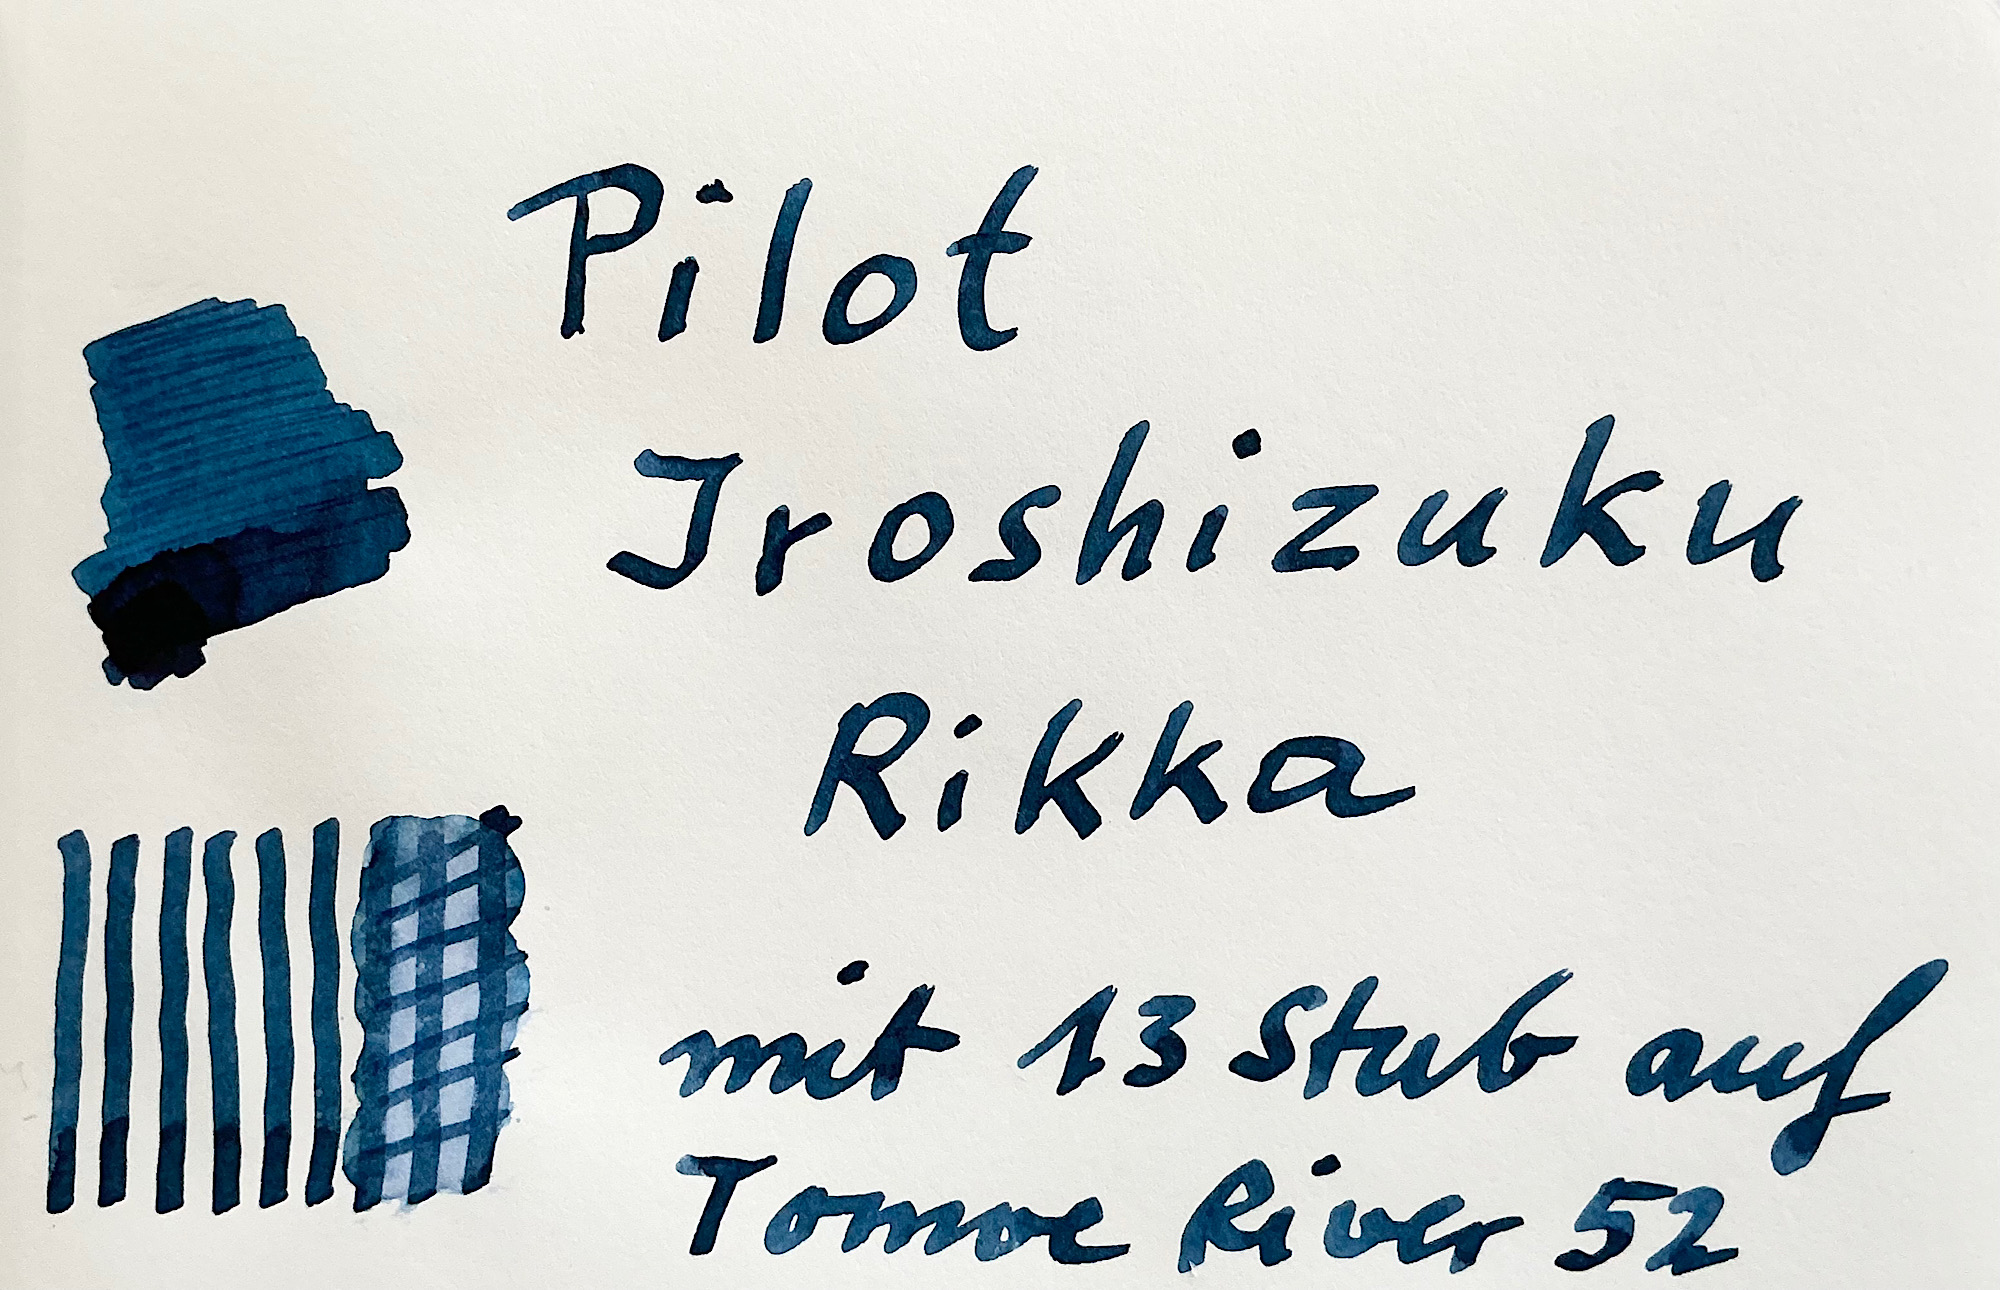 Pilot
Iroshizuku
Rikka
mit 13 Stub auf
Tomoe River 52